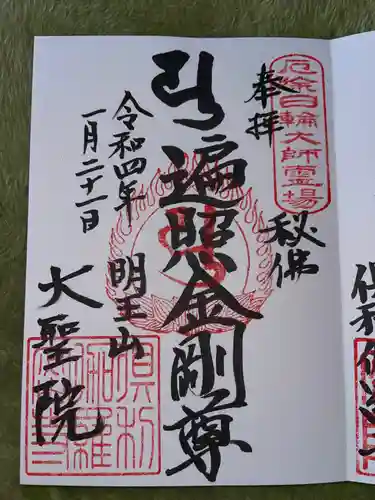 厄除日輪大師霊場
奉拝
秘佛
遍照金剛尊
令和四年
一月二十一日
明王山
大聖院